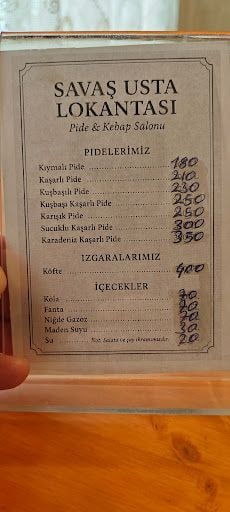 SAVAŞ USTA
LOKANTASI
Pide & Kebap Salonu
PİDELERİMİZ
Kıymalı Pide 180
Kaşarlı Pide 210
Kuşbaşılı Pide 230
Kuşbaşı Kaşarlı Pide 250
Karışık Pide 250
Sucuklu Kaşarlı Pide 300
Karadeniz Kaşarlı Pide 350
IZGARALARIMIZ
Köfte 400
İÇECEKLER
Kola 70
Fanta 70
Niğde Gazoz 70
Maden Suyu 30
Su Not: Salata ve çay ikramımızdır. 20